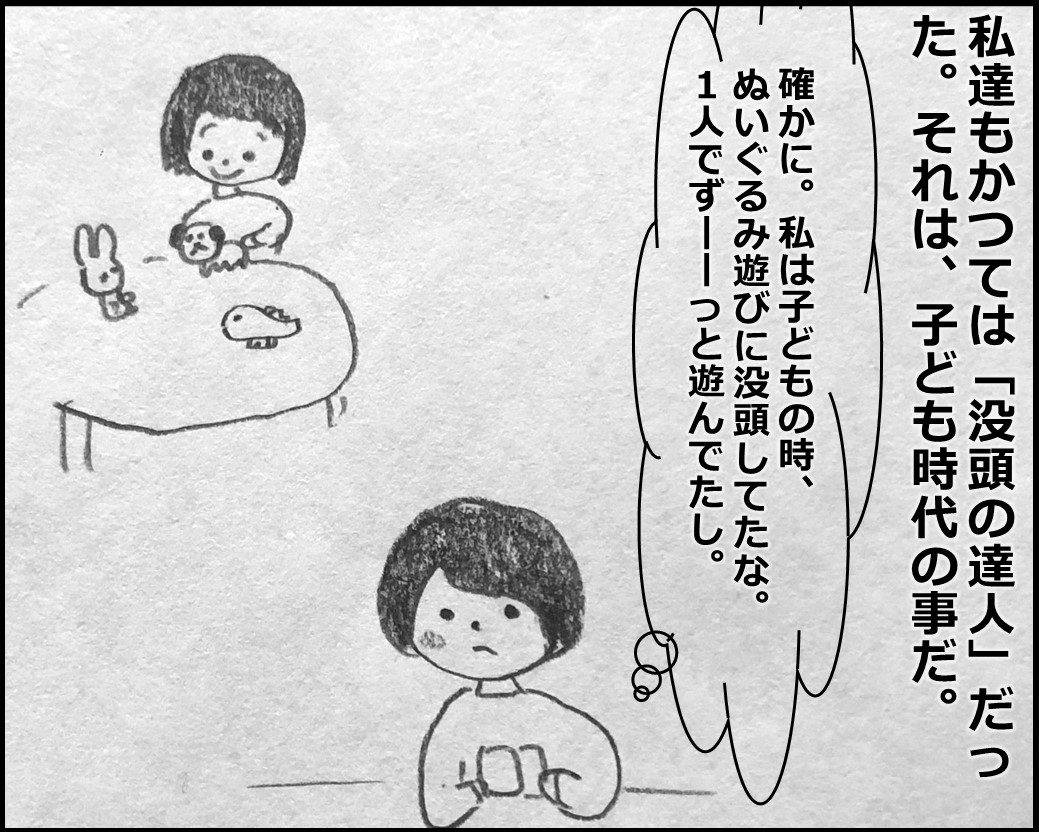 私達もかつては「没頭の達人」だっ
た。それは、子ども時代の事だ。
確かに。私は子どもの時、
ぬいぐるみ遊びに没頭してたな。
１人でずーーっと遊んでたし。